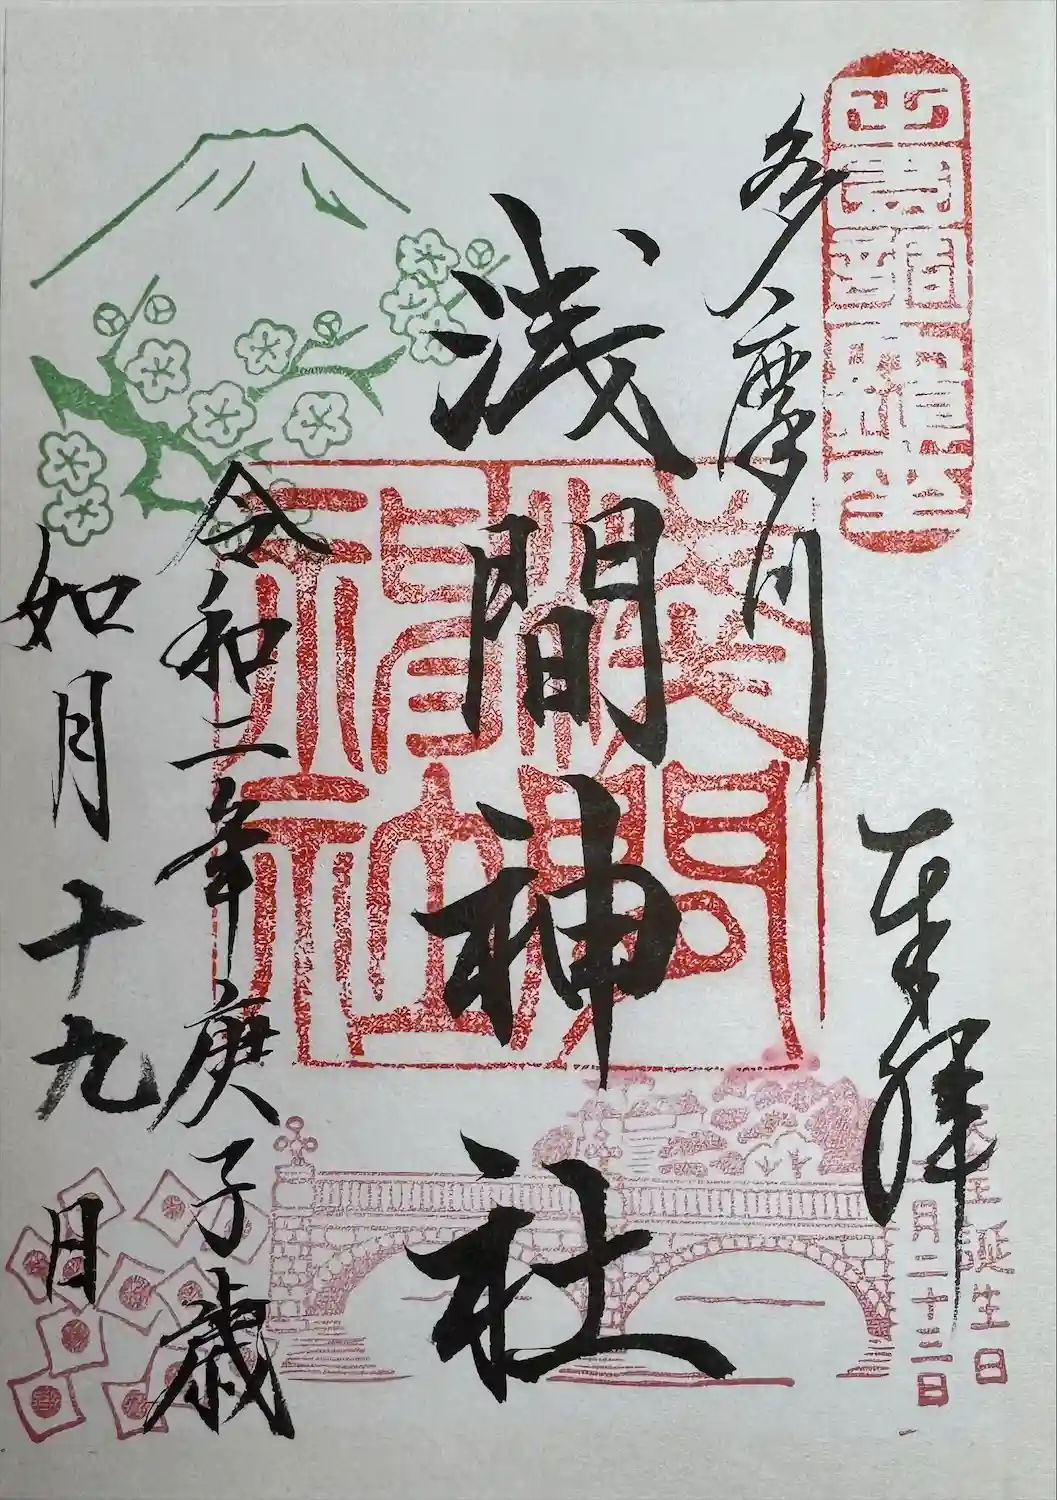 奉拝
天皇誕生日
二月二十三日
多摩川
浅間神社
浅間神社
令和二年庚子歳
如月十九日